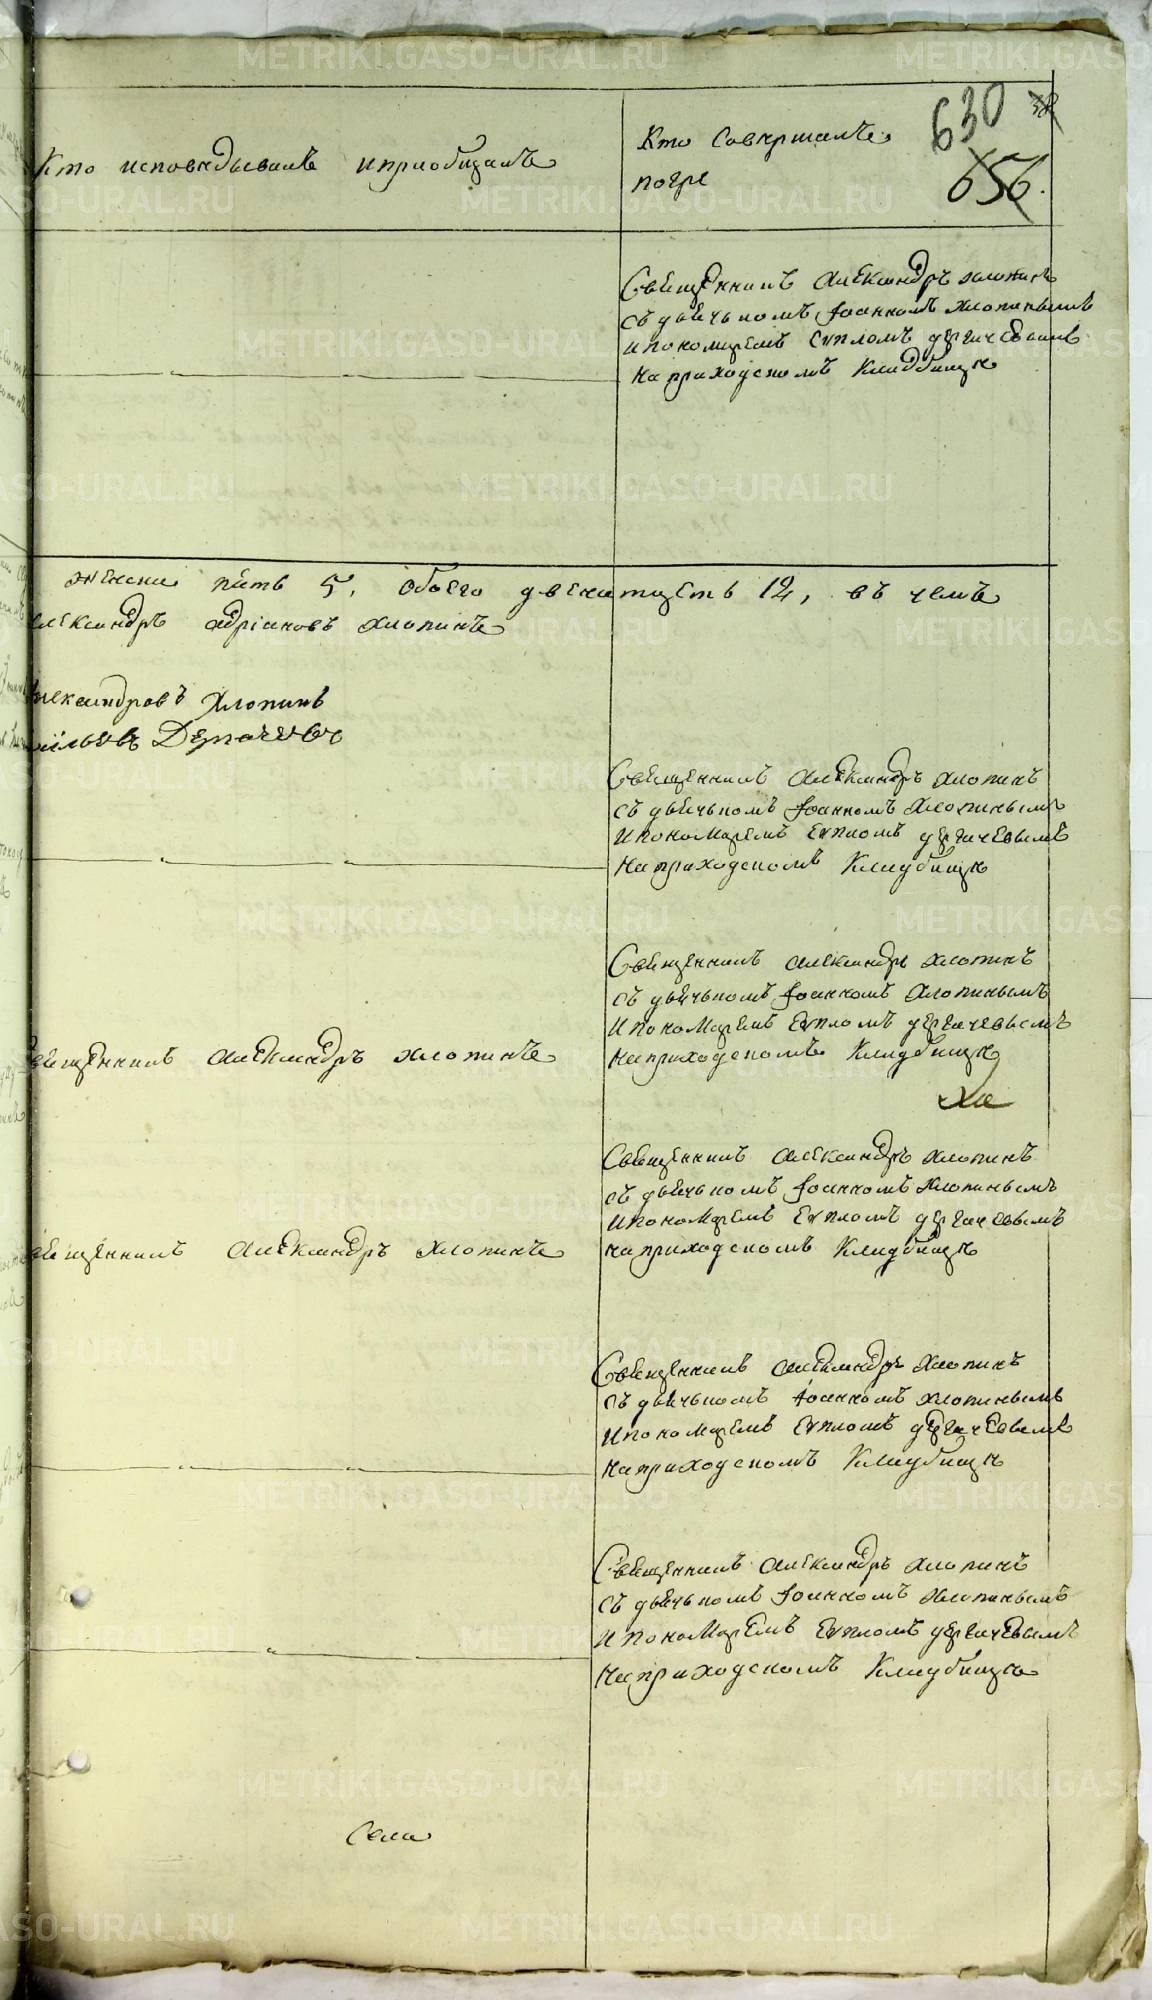 630
656.
Кто исповедывалъ и приобщалъ
Кто совершалъ
погре
Священникъ Александръ Хлопинъ
съ дьячькомъ Іоанномъ Хлопинымъ
и пономаремъ Еѵпломъ Дергачевымъ
на приходскомъ кладбищѣ
женска пять 5, обоего двенатцеть 12, въ чемъ
лександръ Адріановъ Хлопинъ
лександровъ Хлопинъ
ильевъ Дергачевъ
Священникъ Александръ Хлопинъ
съ дьячькомъ Іоанномъ Хлопинымъ
и пономаремъ Еѵпломъ Дергачевымъ
на приходскомъ кладбищѣ
Священникъ Александръ Хлопинъ
съ дьячькомъ Іоанномъ Хлопинымъ
и пономаремъ Еѵпломъ Дергачевымъ
на приходскомъ кладбищѣ
вященникъ Александръ Хлопинъ
Хло
Священникъ Александръ Хлопинъ
съ дьячькомъ Іоанномъ Хлопинымъ
и пономаремъ Еѵпломъ Дергачевымъ
на приходскомъ кладбищѣ
вященникъ Александръ Хлопинъ
Священникъ Александръ Хлопинъ
съ дьячькомъ Іоанномъ Хлопинымъ
и пономаремъ Еѵпломъ Дергачевымъ
на приходскомъ кладбищѣ
Священникъ Александръ Хлопинъ
съ дьячькомъ Іоанномъ Хлопинымъ
и пономаремъ Еѵпломъ Дергачевымъ
на приходскомъ кладбищѣ
Села
METRIKI.GASO-URAL.RU